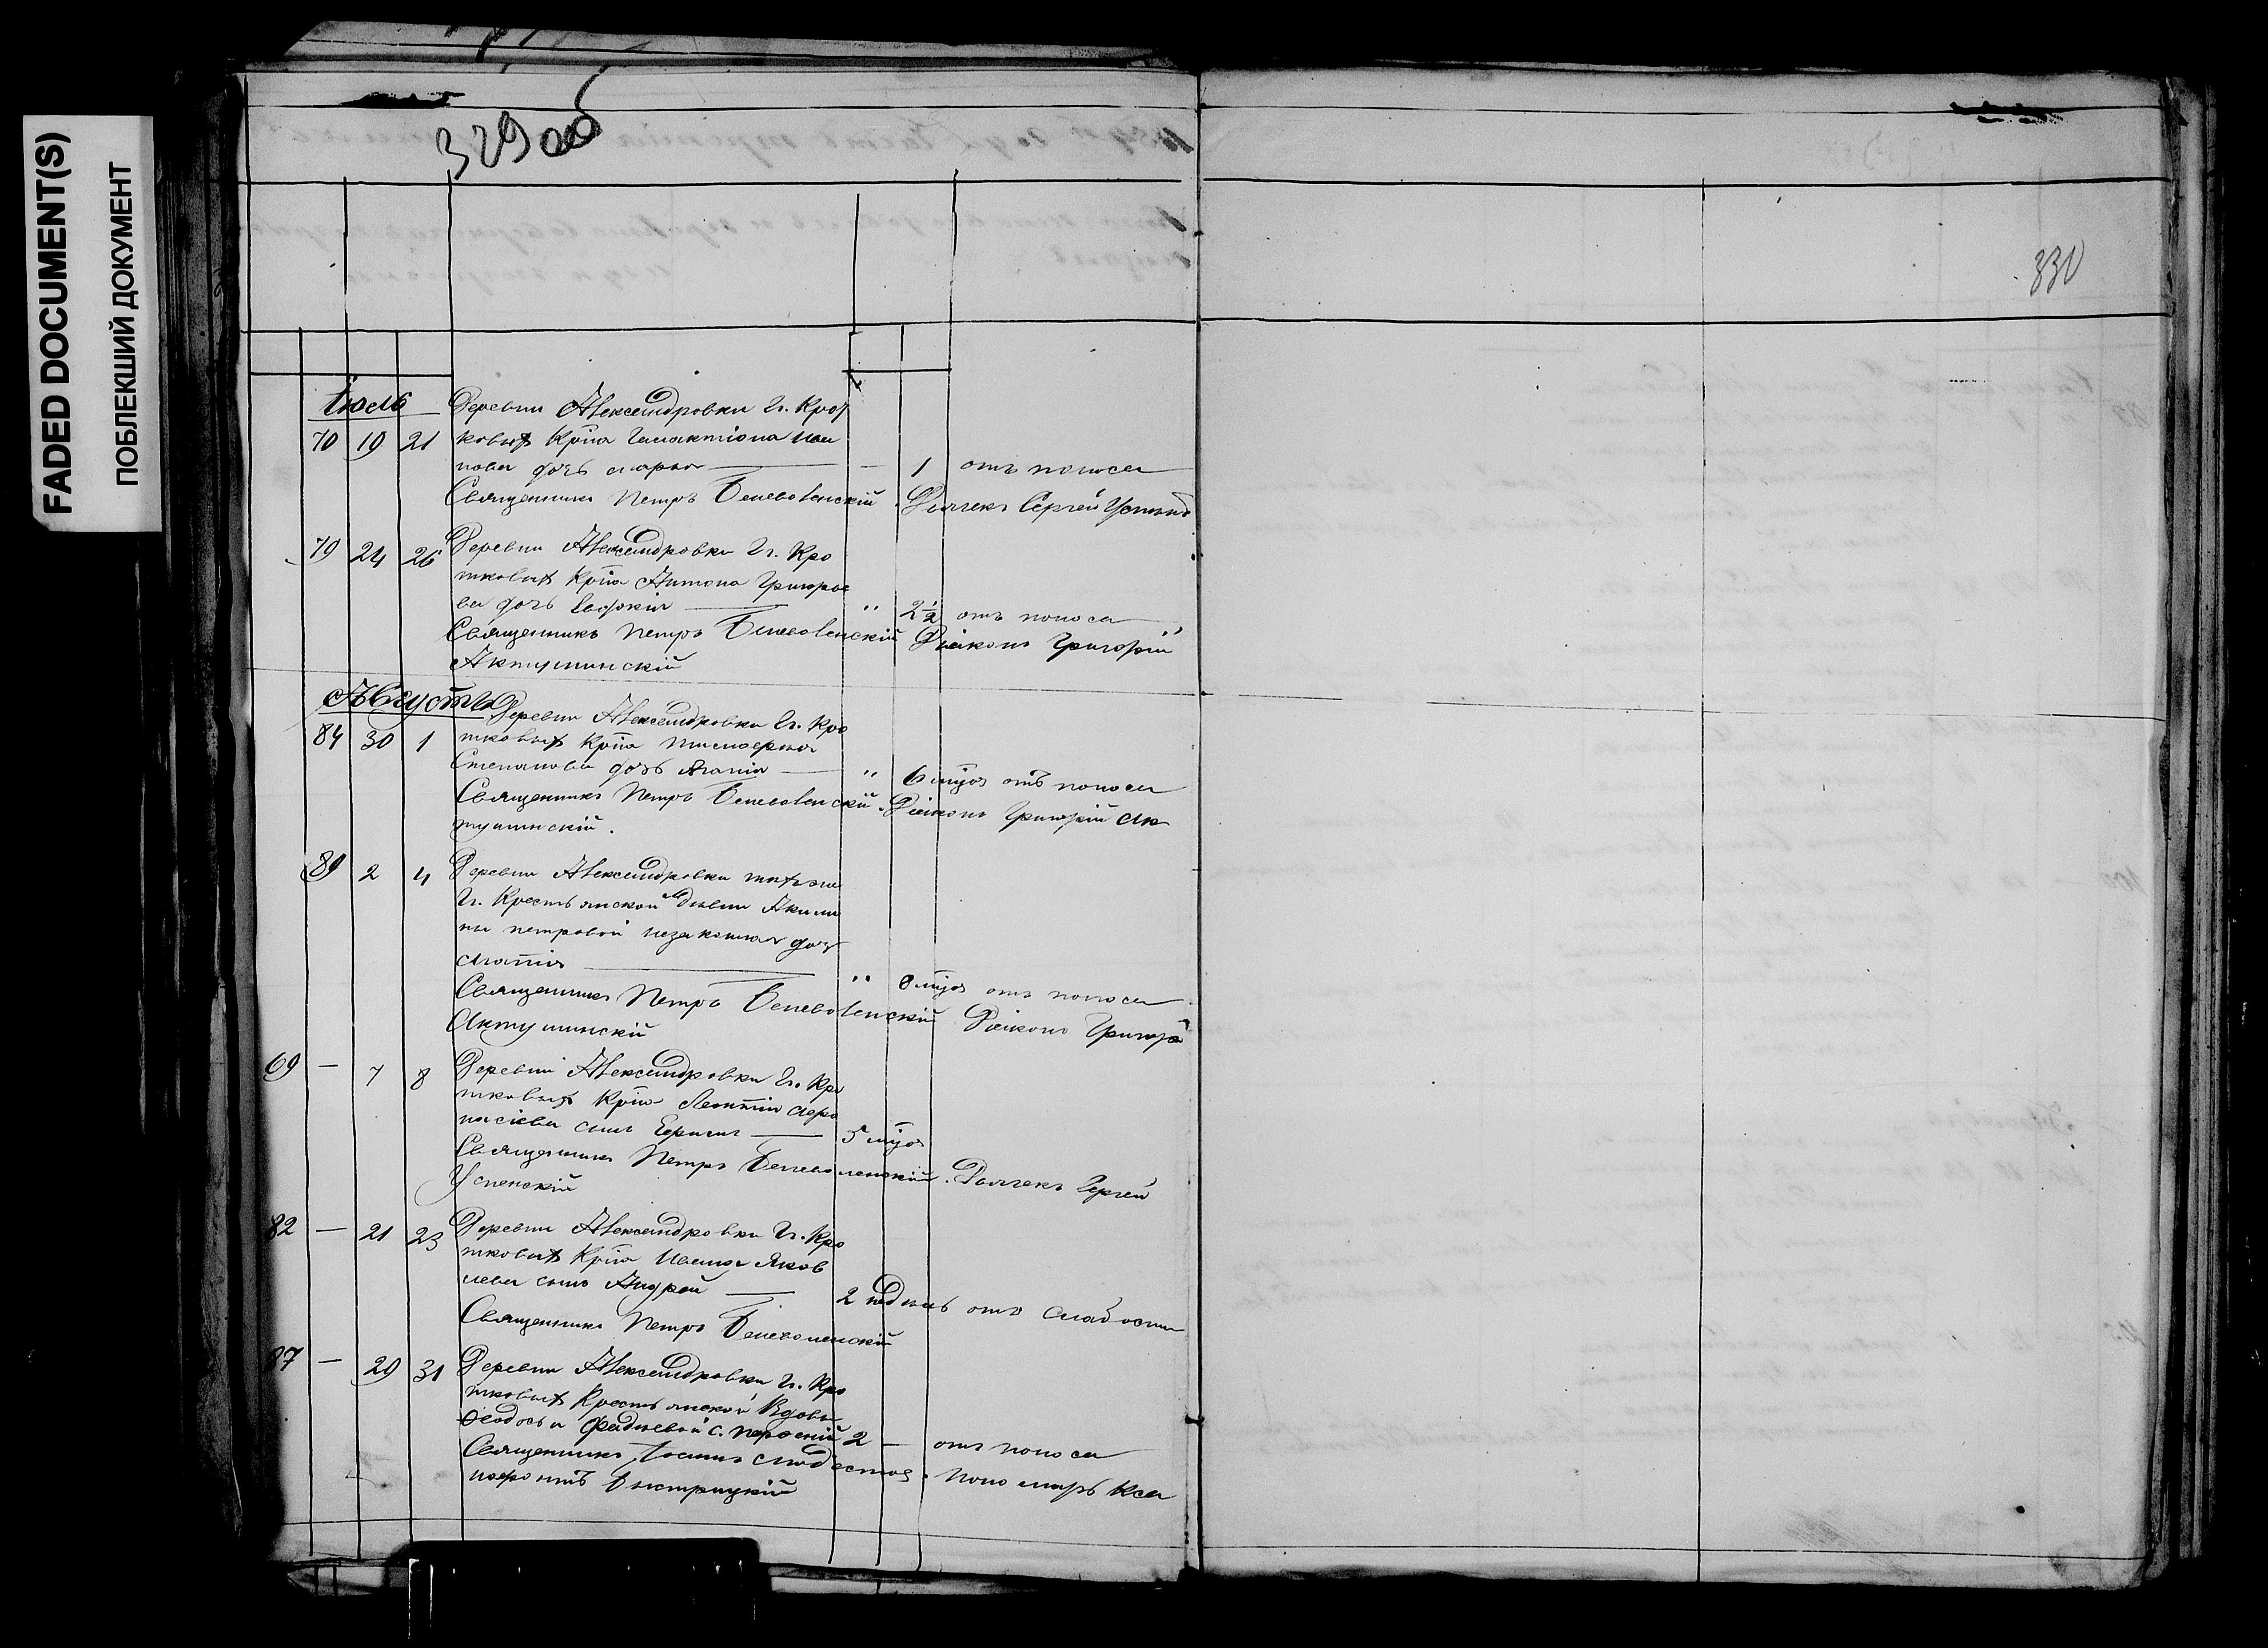 FADED DOCUMENT(S)
ПОБЛЕКШИЙ ДОКУМЕНТ
329 об
330
Іюль
Деревни Александровки Гг. Крот
70 19 21 ковыхъ Крѣна Галактіона Ива
нова дочь Марья — — 1 отъ поноса
Священникъ Петръ Беневоленскій. Дьячекъ Сергѣй Успенс
79 24 26 Деревни Александровки Гг. Кро
тковыхъ Крѣна Антона Григорье
ва дочь Евдокія — " 2½ отъ поноса
Священникъ Петръ Беневоленскій Діаконъ Григорій
Актушинскій
Августъ
Деревни Александровки Гг. Кро
84 30 1 тковыхъ Крѣна
Степанова дочь Агапія — " 6 мцов отъ поноса
Священникъ Петръ Беневоленскій. Діаконъ Григорій Ак
тушинскій.
89 2 4 Деревни Александровки тѣхже
Гг. Крестьянской дѣвки Акили
ны Петровой незаконная дочь
Агапія — " 8 мцов отъ поноса
Священникъ Петръ Беневоленскій Діаконъ Григорій
Актушинскій
69 — 7 8 Деревни Александровки Гг. Кро
тковыхъ Крѣна Леонтія Афа
насіева сынъ — 5 мцов
Священникъ Петръ Беневоленскій. Дьячекъ Сергѣй
Успенскій
82 — 21 23 Деревни Александровки Гг. Кро
тковыхъ Крѣна Ивана Яков
лева сынъ Андрей — 2 недѣль отъ слабости
Священникъ Петръ Беневоленскій
87 — 29 31 Деревни Александровки Гг. Кро
тковыхъ Крестьянской Вдовы
Ѳеодосьи Фадѣевой с. 2 — отъ поноса
Священникъ Іоаннъ Модестов. Пономарь Кса
нофонтъ Быстрицкій